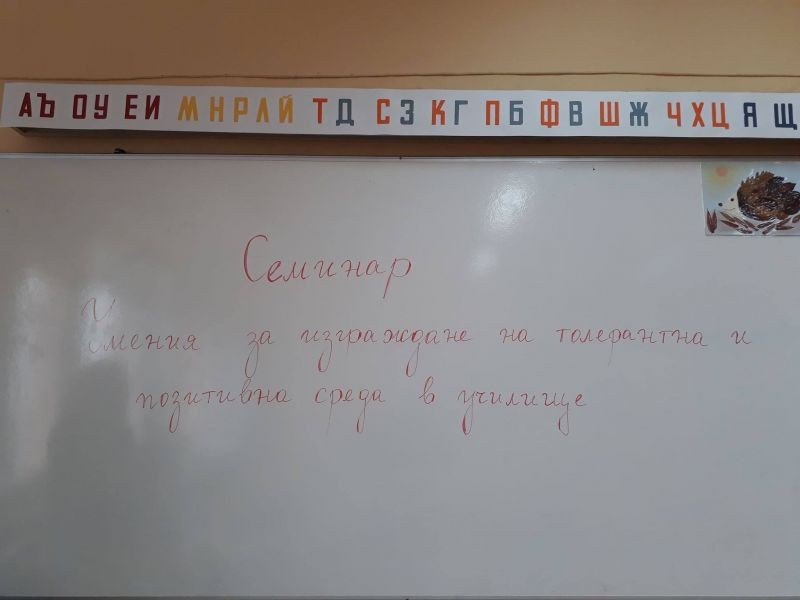 АЪ ОУ ЕИ МНРЛЙ ТД СЗ КГ ПБ ФВ ШЖ ЧХЦ Я Щ
Семинар
Умения за изграждане на толерантна и
позитивна среда в училище